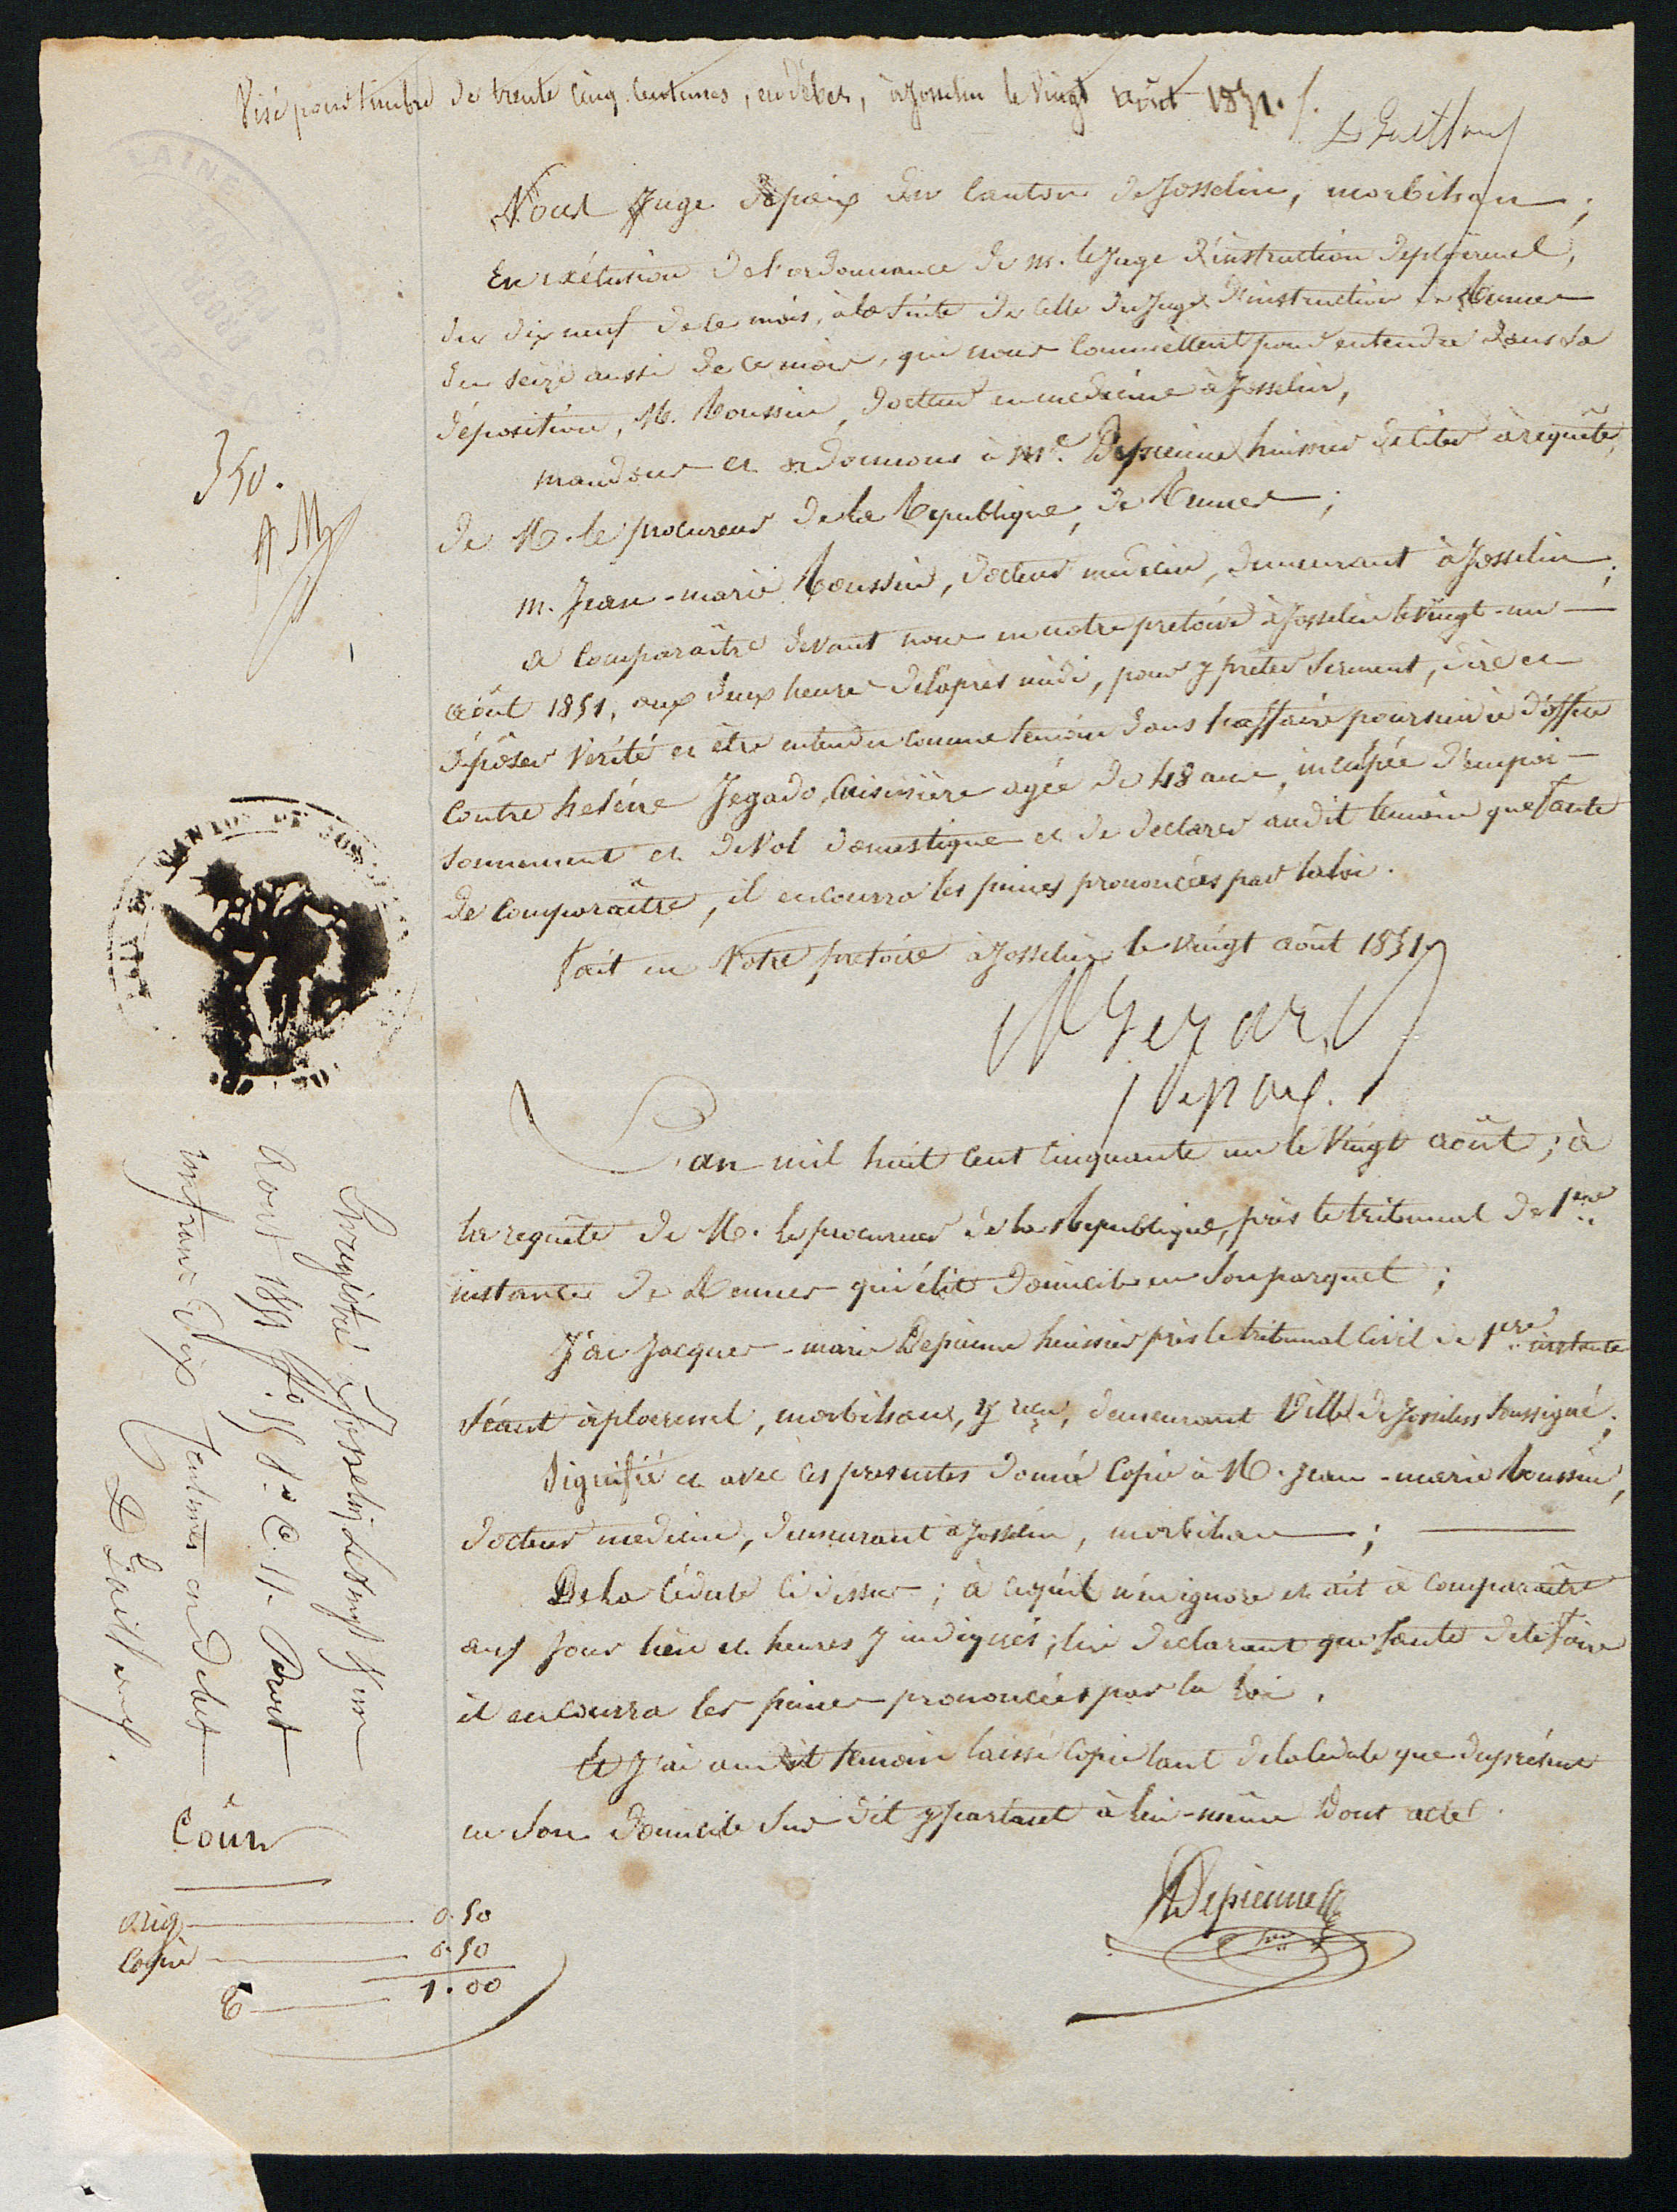 Visé pour timbre de trente cinq centimes, en débet, à Josselin le vingt août 1851.
Nous Juge de paix du canton de Josselin, morbihan;
En exécution de l'ordonnance de m. le Juge d'instruction de ploermel,
du dix neuf de ce mois, à la suite de celle du Juge d'instruction de Rennes
du seize aussi de ce mois, qui nous commettent pour entendre dans sa
déposition, M. Roussin, docteur en medecine à Josselin,
mandons et ordonnons à Me. Depienne huissier de citer à requête,
de M. le procureur de la Republique, de Rennes;
m. Jean-marie Roussin, docteur medecin, demeurant à Josselin;
à comparaître devant nous en notre pretoire à Josselin le vingt-un
août 1851, aux deux heures de l'après midi, pour y prêter serment, dire et
déposer vérité et être entendu comme temoin dans l'affaire poursuivie d'office
contre heléne Jegado, cuisinière agée de 48 ans, inculpée d'empoi-
sonnement et de vol domestique et de declarer audit temoin que faute
de comparaître, il encourra les peines prononcées par la loi.
fait en Notre pretoire à Josselin le vingt août 1851
J de paix.
L'an mil huit cent cinquante un le vingt août; à
la requête de M. le procureur de la Republique, près le tribunal de 1ere
instance de Rennes qui élit domicile en son parquet;
J'ai Jacques-marie Depienne huissier près le tribunal civil de 1ere instance
séant à ploermel, morbihan, y reçu, demeurant Ville de Josselin soussigné;
signifié et avec ces presentes donné copie à M. Jean-marie Roussin,
docteur medecin, demeurant à Josselin, morbihan;
De la cédule ci dessus; à ce qu'il n'en ignore et ait à comparaître
aux jour lieu et heures y indiqués; lui declarant que faute de le faire
il encourra les peines prononcées par la loi.
Et j'ai audit temoin laissé copie tant de la cedule que du présent
en son domicile sus dit y parlant à lui-même Dont acte.
Depienne
350.
Enregistré à Josselin le vingt un
Août 1851 fo. 55 Ro. C. 11. Reçut
un franc dix centimes en debet
Coût
orig. 0.50
Copie 0.50
T 1.00